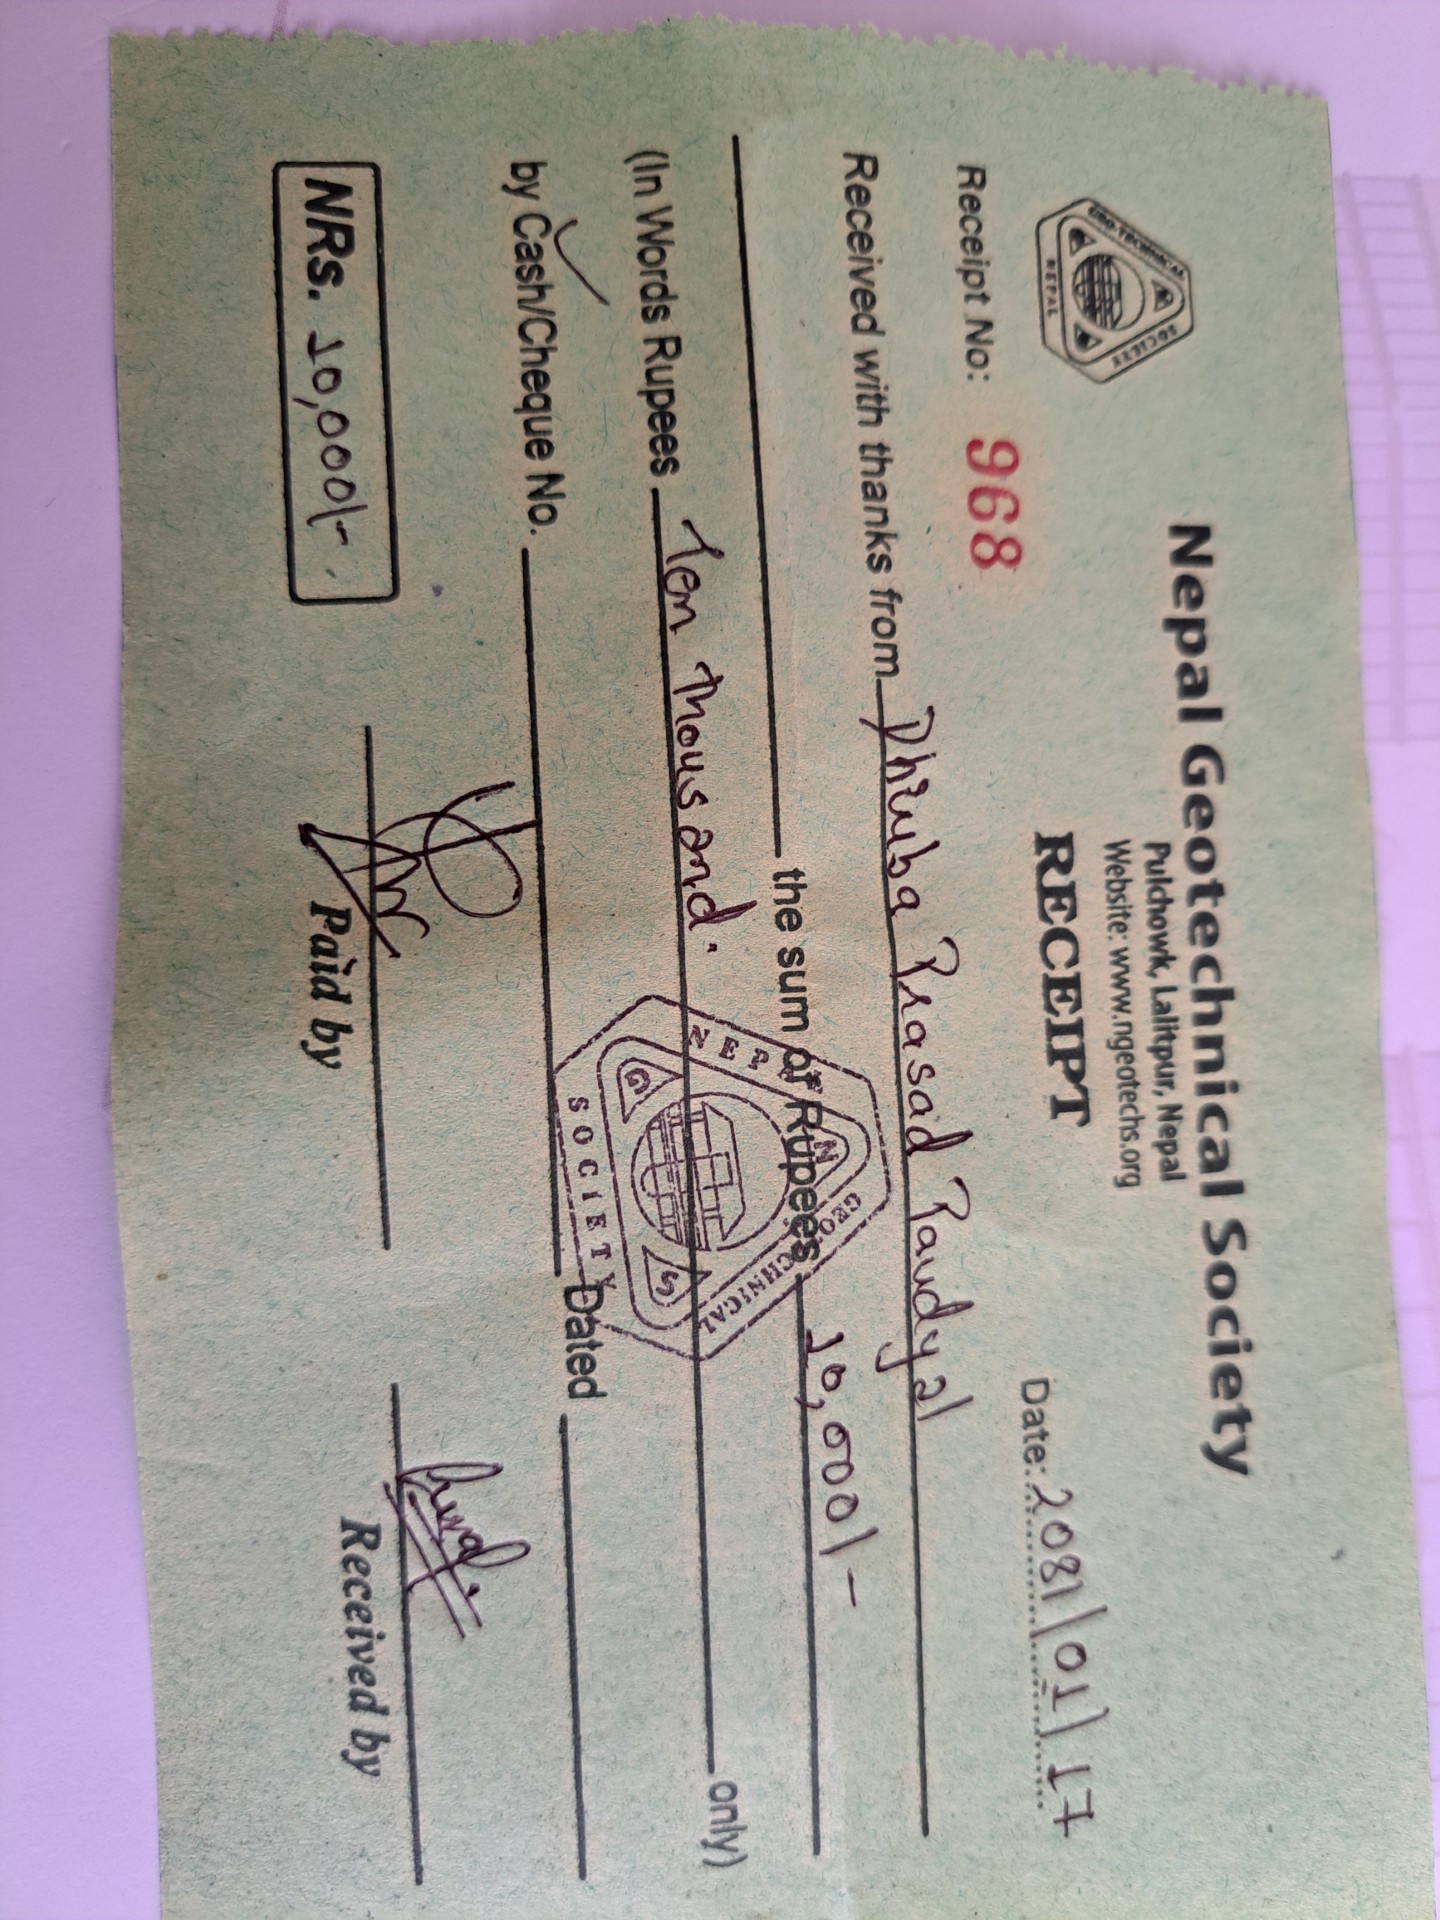 Nepal Geotechnical Society
Pulchowk, Lalitpur, Nepal
Website: www.ngeotechs.org
GEO-TECHNICAL SOCIETY NEPAL
RECEIPT
Receipt No: 968
Date: 2081/01/17
Received with thanks from Dhruba Prasad Paudyal
the sum of Rupees 10,000/-
(In Words Rupees Ten Thousand. only)
by Cash/Cheque No. Dated
NEPAL GEOTECHNICAL SOCIETY
N G S
NRs. 10,000/-
Paid by
Received by